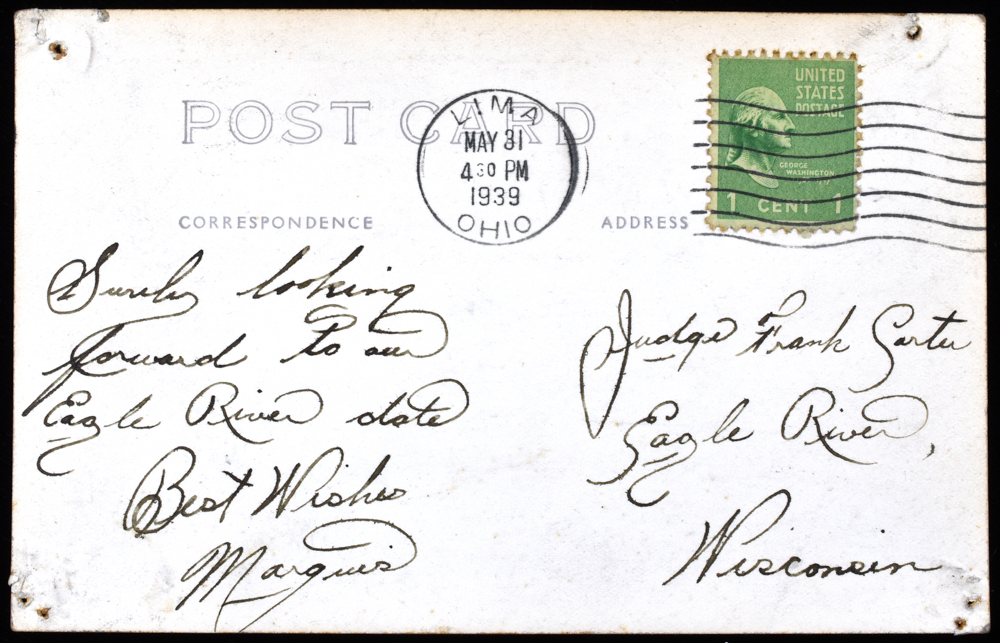 POST CARD
LIMA
MAY 31
4 30 PM
1939
OHIO
UNITED
STATES
POSTAGE
GEORGE
WASHINGTON
1 CENT 1
CORRESPONDENCE
ADDRESS
Surely looking
forward to our
Eagle River date
Best Wishes
Marquis
Judge Frank Carter
Eagle River,
Wisconsin